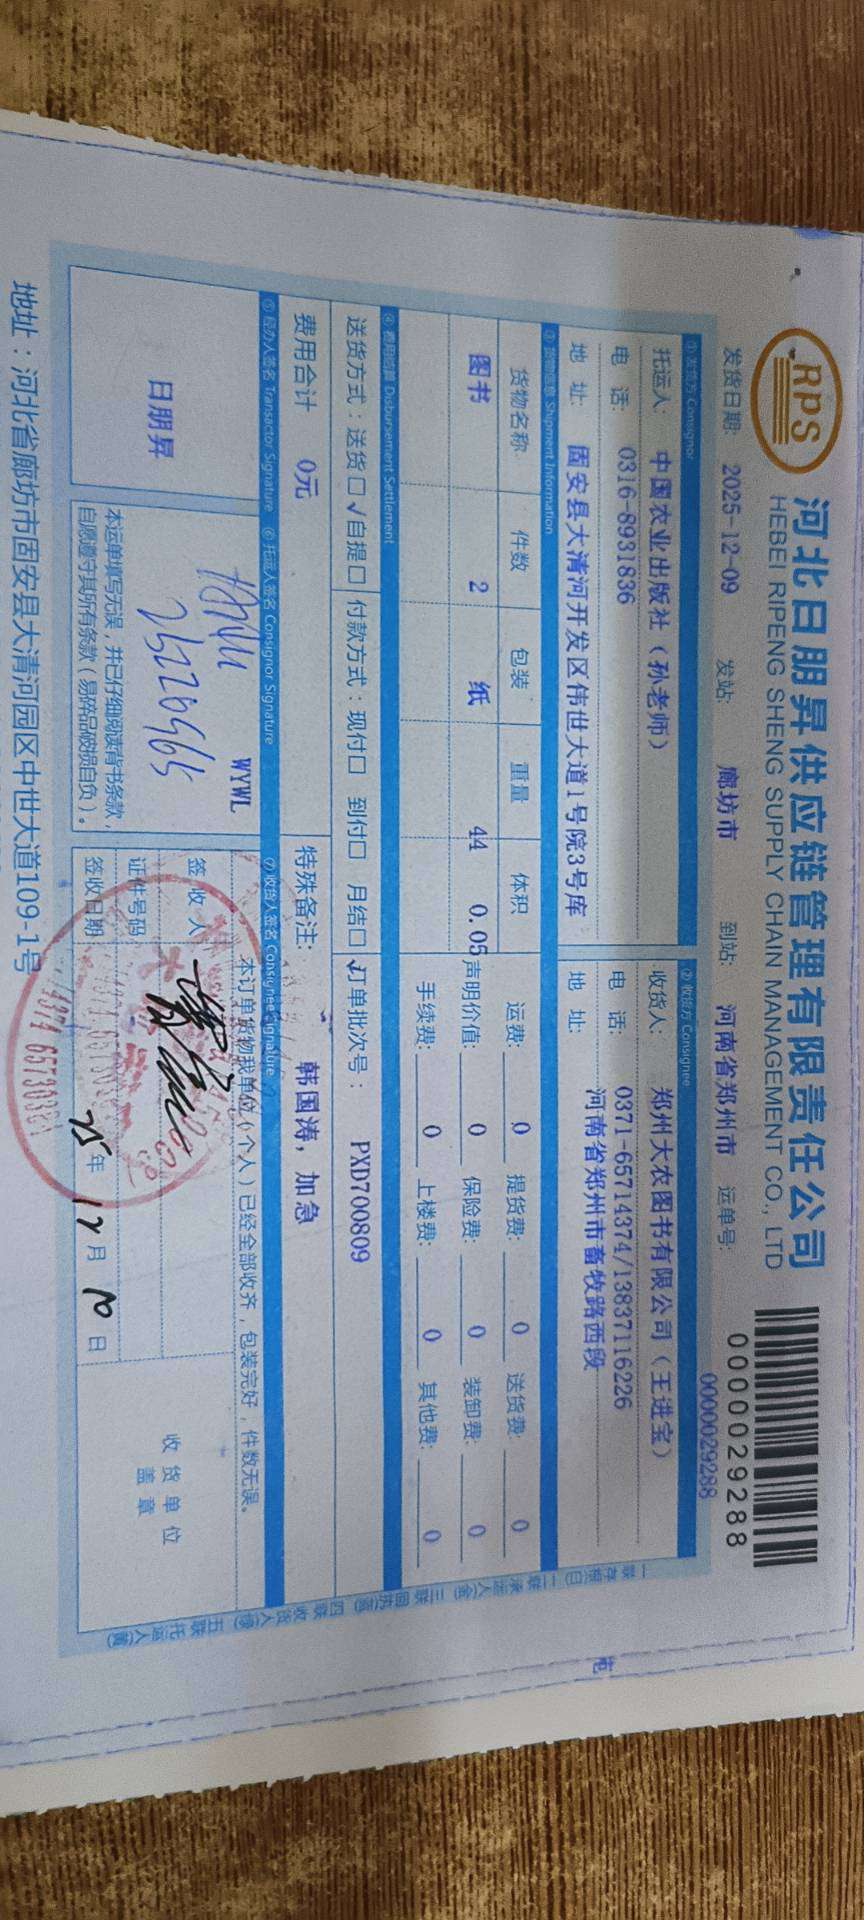 RPS
河北日朋昇供应链管理有限责任公司
HEBEI RIPENG SHENG SUPPLY CHAIN MANAGEMENT CO., LTD
0000029288
发货日期: 2025-12-09 发站: 廊坊市 到站: 河南省郑州市 运单号: 0000029288
① 发货方 Consignor ② 收货方 Consignee
托运人: 中国农业出版社（孙老师） 收货人: 郑州大农图书有限公司（王进宝）
电 话: 0316-8931836 电 话: 0371-65714374/13837116226
地 址: 固安县大清河开发区伟世大道1号院3号库 地 址: 河南省郑州市畜牧路西段
③ 货物信息 Shipment Information
货物名称 件数 包装 重量 体积 运费: 0 提货费: 0 送货费: 0
图书 2 纸 44 0.05 声明价值: 0 保险费: 0 装卸费: 0
手续费: 0 上楼费: 0 其他费: 0
④ 费用结算 Disbursement Settlement
送货方式：送货□√自提□ 付款方式：现付□ 到付□ 月结□√ 订单批次号： PXD700809
费用合计 0元 特殊备注: 韩国涛，加急
⑤ 经办人签名 Transactor Signature ⑥ 托运人签名 Consignor Signature ⑦ 收货人签名 Consignee Signature
日朋昇
WYWL
本运单填写无误，并已仔细阅读背书条款，
自愿遵守其所有条款（易碎品破损自负）。
本订单货物我单位（个人）已经全部收齐，包装完好，件数无误。
签 收 人
证件号码
签收日期 25年 12月 10日
收 货 单 位
盖 章
地址：河北省廊坊市固安县大清河园区中世大道109-1号